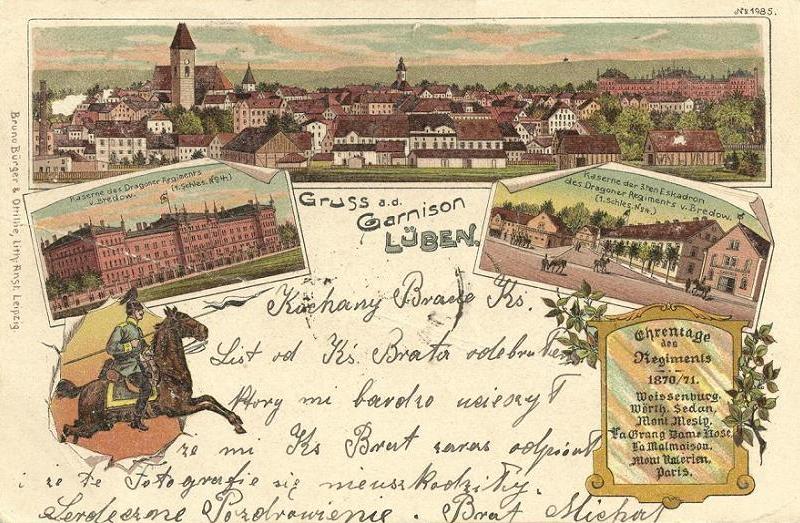 No 1985.
Bruno Bürger & Ottillie, Lith. Anst. Leipzig.
Kaserne des Dragoner Regiments
v. Bredow. (1. Schles. No 4.)
Gruss a.d.
Garnison
LÜBEN.
Kaserne der 3ten Eskadron
des Dragoner Regiments v. Bredow.
(1. Schles. No 4.)
Kochany Bracie Ks.
List od Ks. Brata odebrałem
ktory mi bardzo ucieszył
ze mi Ks Brat zaras odpisał
i ze te Fotografie się nieuszkodziły.
Serdeczne Pozdrowienie. Brat Michał
Ehrentage
des
Regiments
1870/71.
Weissenburg.
Wörth. Sedan,
Mont Mesly.
La Grang Dame Rose.
La Malmaison.
Mont Valerien.
Paris.